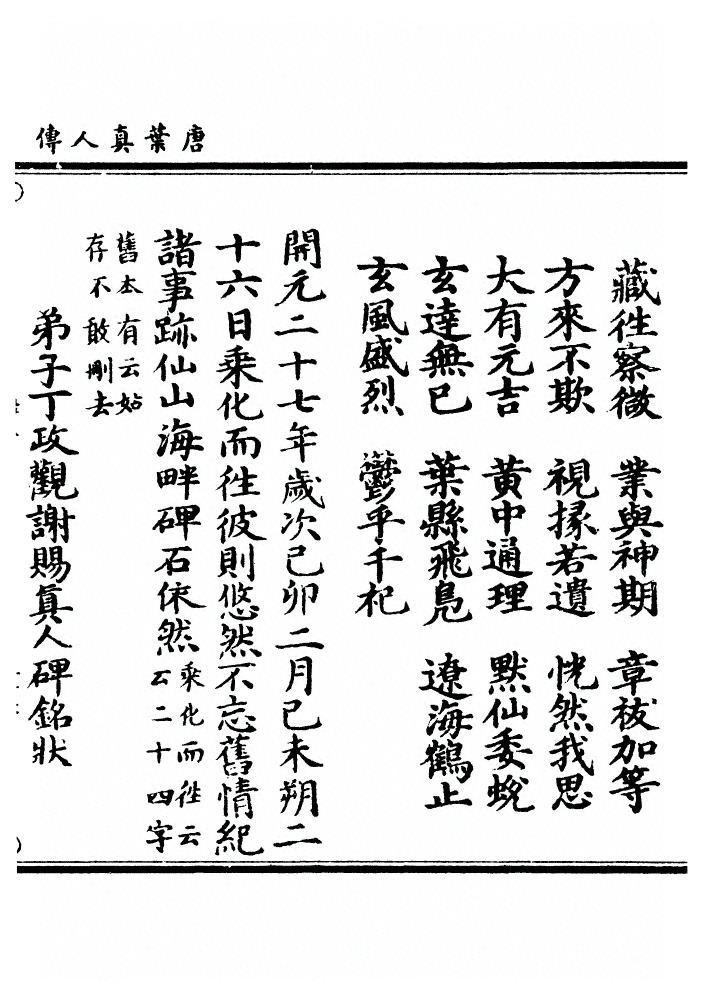 唐葉真人傳
藏徃察微　業與神期　章祓加等
方來不欺　視掾若遺　恍然我思
大有元吉　黃中通理　默仙委蛻
玄達無已　葉縣飛鳧　遼海鶴止
玄風盛烈　鬱乎千祀
開元二十七年歲次己卯二月己未朔二
十六日乘化而徃彼則悠然不忘舊情紀
諸事跡仙山海畔碑石依然乘化而徃云
云二十四字
舊本有云姑
存不敢刪去
弟子丁政觀謝賜真人碑銘狀